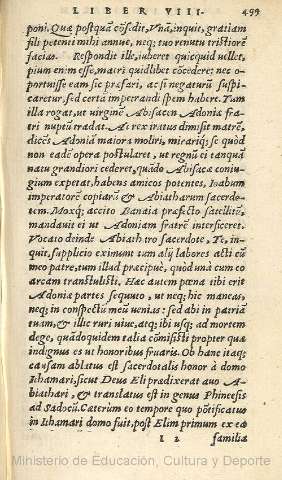 LIBER VIII. 499
poni. Quæ postquã cõsedit, Vnã, inquit, gratiam
fili petenti mihi annue, neq; tuo renutu tristiorẽ
facias. Respondit ille, iuberet quicquid uellet,
pium enim esse, matri quidlibet cõcedere: nec o-
portuisse eam sic præfari, ac si negaturũ suspi-
caretur, sed certã impetrandi spem habere. Tum
illa rogat, ut virginẽ Abisacen Adoniæ fra
tri nuptũ tradat. At rex iratus dimisit matrẽ,
dicẽs Adoniã maiora moliri, mirariq; se quòd
non eadẽ opera postularet, ut regnũ ei tanquã
natu grandiori cederet, quãdo Abisacæ coniu-
gium expetat, habens amicos potentes, Ioabum
imperatorẽ copiarũ & Abiatharum sacerdo-
tem. Moxq; accito Banaia præfecto satellitũ,
mandauit ei ut Adoniam fratrẽ interficeret.
Vocato deinde Abiathro sacerdote, Te, in-
quit, supplicio eximunt cùm alij labores acti cũ
meo patre, tum illud præcipuè, quòd unà cum eo
arcam transtulisti. Hæc autem pœna tibi erit
Adoniæ partes sequuto, ut neq; hic maneas,
neq; in conspectũ meũ uenias: sed abi in patriã
tuam, & illic ruri uiue, atq; ibi usq; ad mortem
dege, quãdoquidem talia cõmisisti propter quæ
indignus es ut honoribus fruaris. Ob hanc itaq;
causam ablatus est sacerdotalis honor à domo
Ithamari, sicut Deus Eli prædixerat auo A-
biathari, & translatus est in genus Phineesis
ad Sadocũ. Cæterùm eo tempore quo põtificatus
in Ithamari domo fuit, post Elim primum ex ea
I 2 familia
Ministerio de Educación, Cultura y Deporte